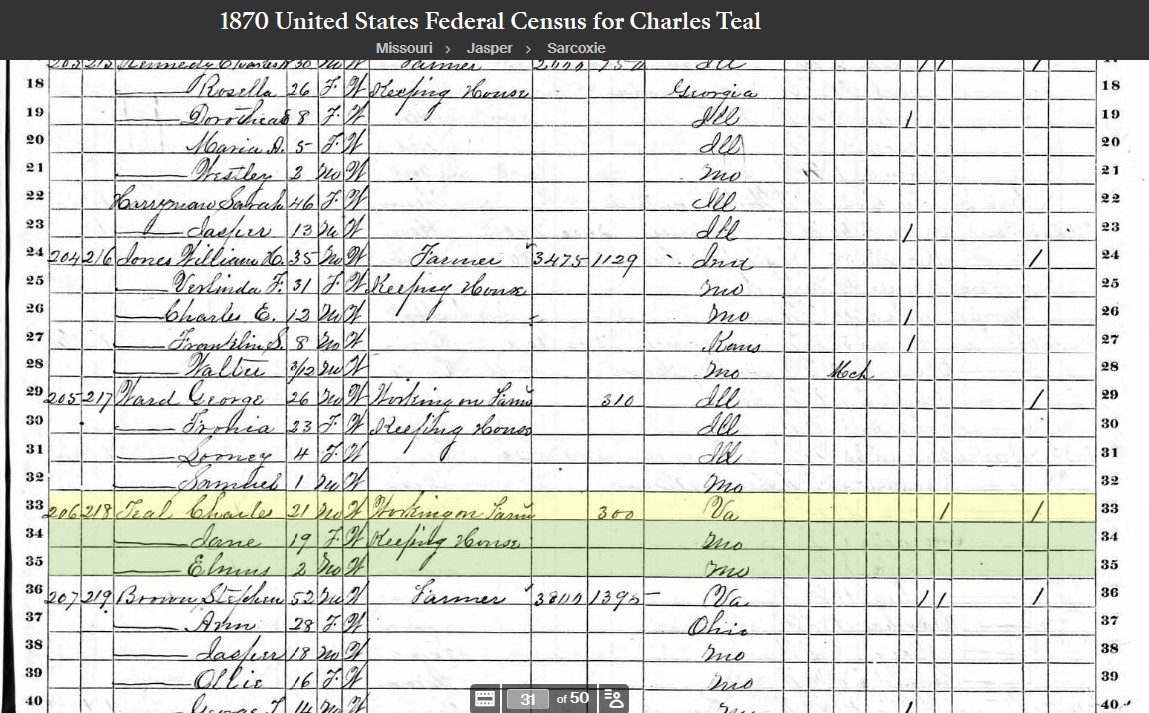 1870 United States Federal Census for Charles Teal
Missouri > Jasper > Sarcoxie
203 213 Kennedy 30 M W Farmer Ill 1 1 1
18 Rosella 26 F W Keeping House Georgia 18
19 8 F W Ill 1 19
20 Maria A. 5 F W Ill 20
21 Westley 2 M W Mo 21
22 Harryman Sarah 46 F W Ill 22
23 Jasper 13 M W Ill 1 23
24 204 216 Jones William H. 35 M W Farmer 3475 1129 Ind 1 24
25 Verlinda F. 31 F W Keeping House Mo 25
26 Charles E. 12 M W Mo 1 26
27 Franklin S. 8 M W Kans 1 27
28 Walter 3/12 M W Mo Mch 28
29 205 217 Ward George 26 M W Working on Farm 310 Ill 1 29
30 23 F W Keeping House Ill 30
31 4 F W Ill 31
32 Samuel 1 M W Mo 32
33 206 218 Teal Charles 21 M W Working on Farm 300 Va 1 1 33
34 Jane 19 F W Keeping House Mo 34
35 2 M W Mo 35
36 207 219 Brown Stephen 52 M W Farmer 1395 Va 1 1 1 36
37 Ann 28 F W Ohio 37
38 Jasper 18 M W Mo 38
39 Ollie 16 F W Mo 39
40 George F. 14 M W 1 40
31 of 50